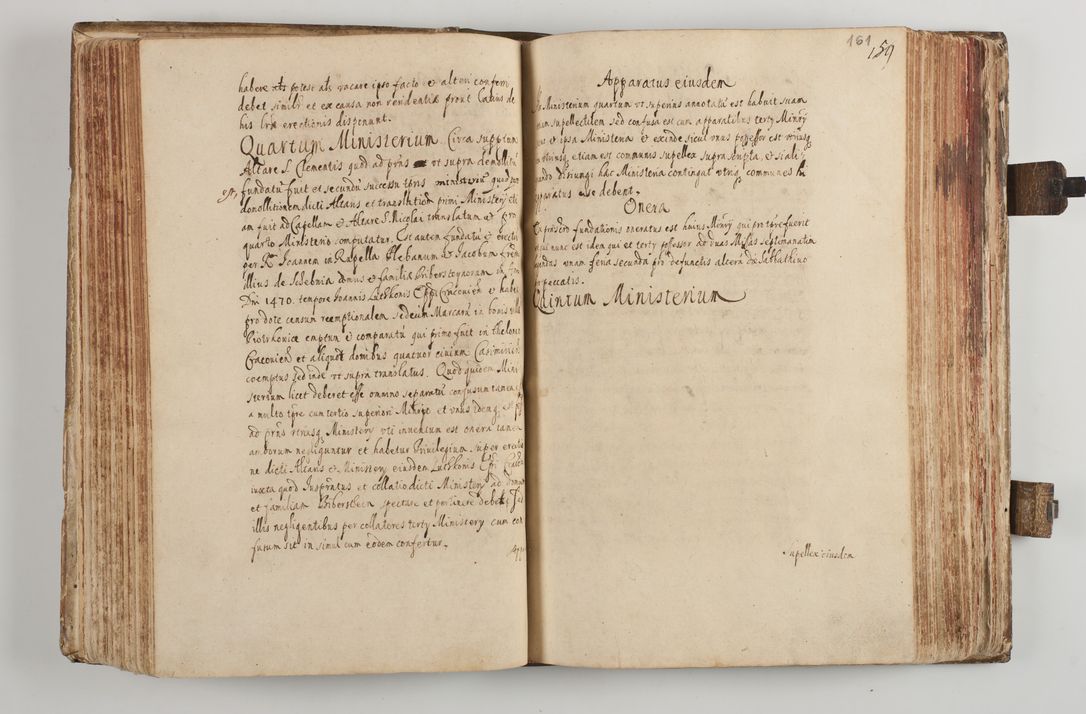 habere potest als vacare ipso facto et alteri conferri
debet simili et ex causa non residentiæ prout latius de
his lræ erectionis disponunt.
Quartum Ministerium Circa supptum
Altare S. Clementis quod ad prns ut supra demollitũ
est, fundatũ fuit et secundũ successu tpris ministeriũ quod per
demollitionem dicti Altaris et translationem primi Ministerij eti
am fuit ad Capellam et Altare S. Nicolai translatum et pro
quarto Ministerio computatur. Est autem fundatũ et erectũ
per Rm Joannem in Kapella Plebanum et Jacobum
illius de domus et familiæ Bibersteynorum
Dni 1470. tempore Joannis Lutkonis Eppi Cracovien et habet
pro dote censum reemptionalem sedecim Marcarũ in bonis villæ
Piotrkovice emptum et comparatũ qui primo fuit in theloneo
Cracovien et aliquot domibus quatuor civium Casimirien
coemptus sed inde ut supra translatus. Quod quidem Mini
sterium licet deberet esse omnino separatũ confusum tamen est
a multo tpre cum tertio superiori Minrijo et unus idemq est
ad prns utriusq Ministerij uti inventum est onera tamen
amborum negliguntur et habetur Privilegium super erectio
ne dicti Altaris et Ministerij eiusdem Lutkonis Eppi Cracovien
iuxta quod Juspatrtus et collatio dicti Ministerij ad domum
et familiam Bibersthein spectare et pertinere debet, sed
illis negligentibus per collatores tertij Ministerij cum con
fusum sit in simul cum eodem confertur.
161
159
Apparatus eiusdem
Ministerium quartum ut superius annotatũ est habuit suam
suppellectilem sed confusa est cum apparatibus tertij Minrij
et ipsa Ministeria et exinde sicut unus possessor est utriusq
utriusq etiam est communis supellex supra scripta, et si ali
quando disiungi hæc Ministeria contingat utriusq communes hi
apparatus esse debent.
Onera
Ex prascto fundationis oneratus est huius Minrij qui pro tpre fuerit
qui nunc est idem qui et tertij possessor ad duas Missas septimanatim
legendas unam feria secunda pro defunctis alteram die Sabbathino
pro peccatis.
Quintum Ministerium
Supellex eiusdem